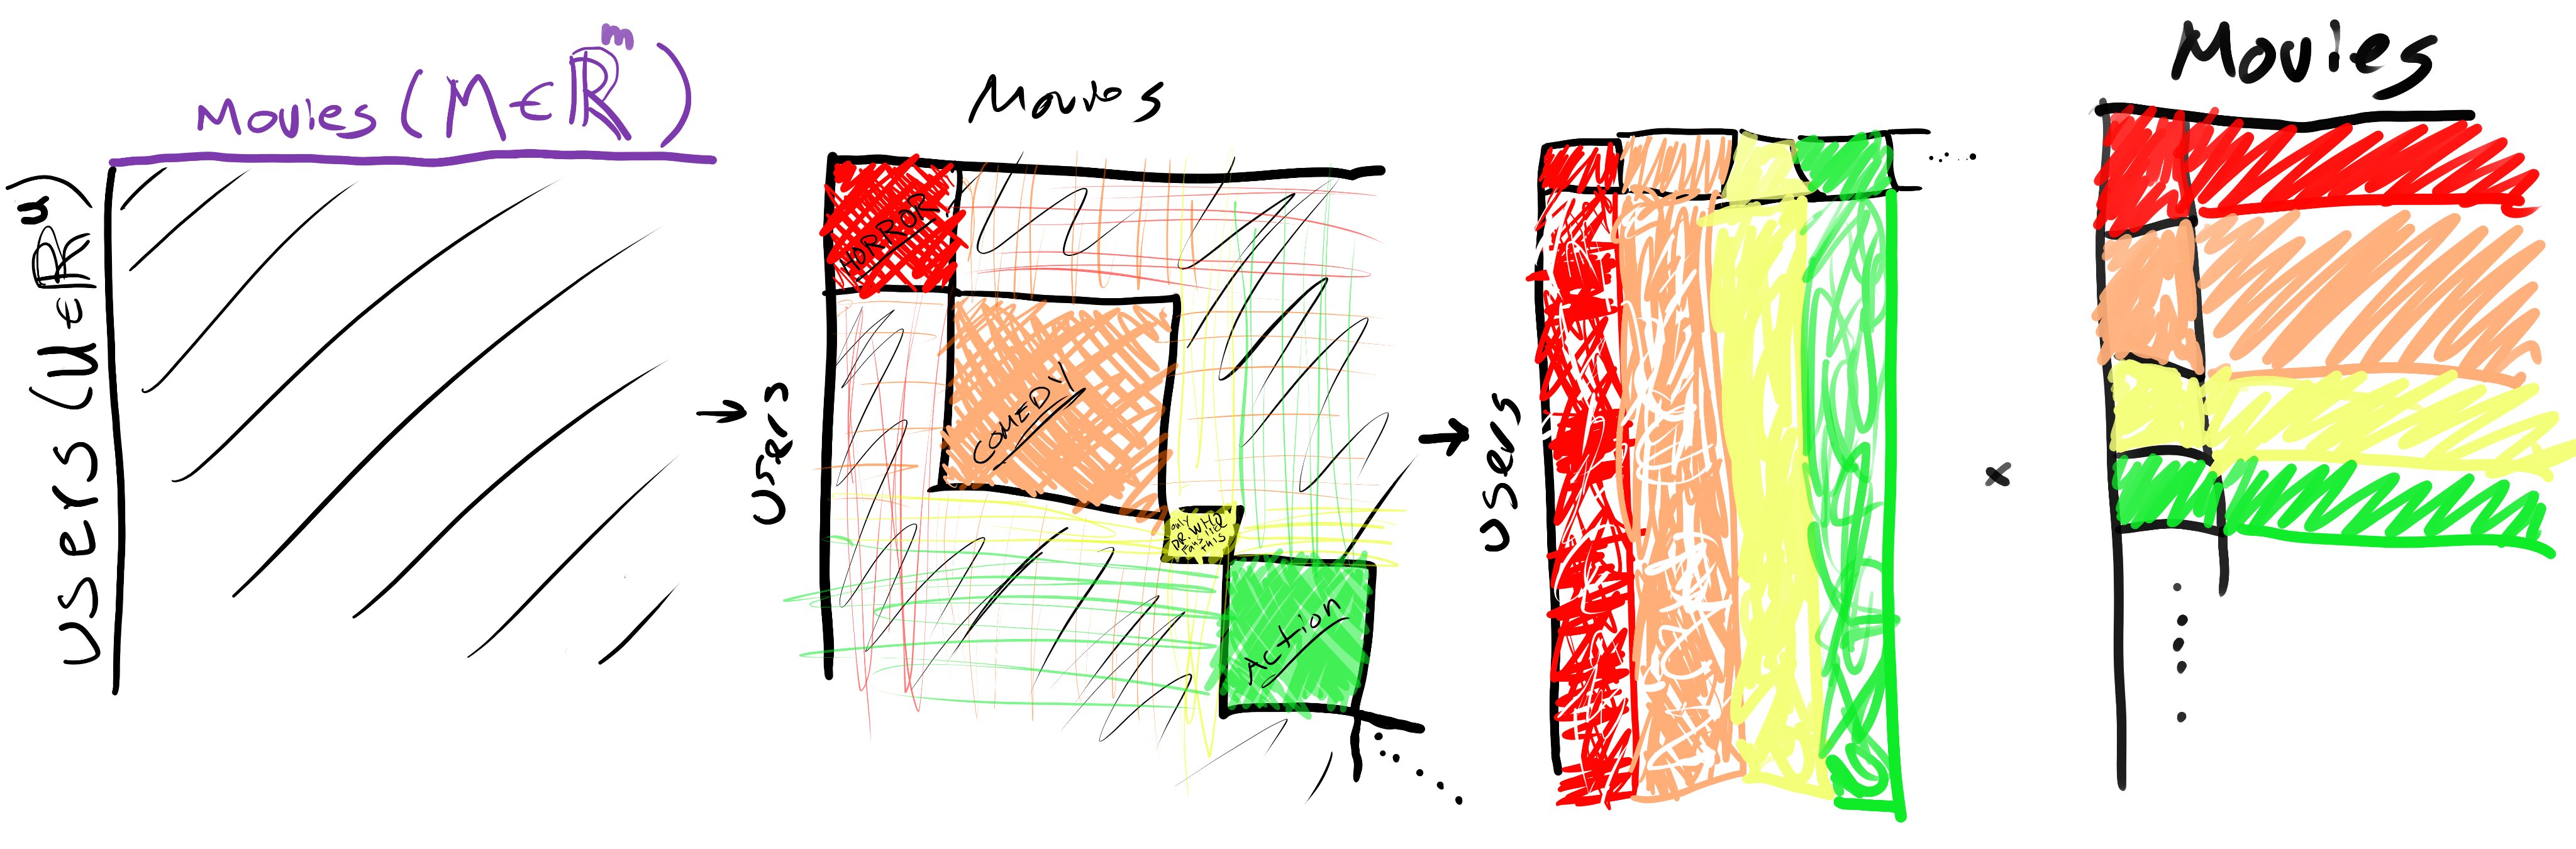 Movies (M ∈ ℝᵐ)
Users (U ∈ ℝᵘ)
Movies
Users
HORROR
COMEDY
only
DR. WHO
fans like
this
Action
Users
x
Movies